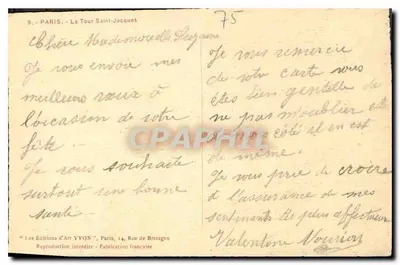 9. - PARIS. - La Tour Saint-Jacques
75
Chère Mademoiselle Suzanne
Je vous envoie mes
meilleurs vœux à
l'occasion de votre
fête.
Je vous souhaite
surtout une bonne
santé.
Je vous remercie
de votre carte vous
êtes bien gentille de
ne pas m'oublier et
de mon côté il en est
de même.
Je vous prie de croire
à l'assurance de mes
sentiments les plus affectueux
Valentine
"Les Editions d'Art YVON", Paris, 14, Rue de Bretagne
Reproduction interdite - Fabrication française
CPAPHIL